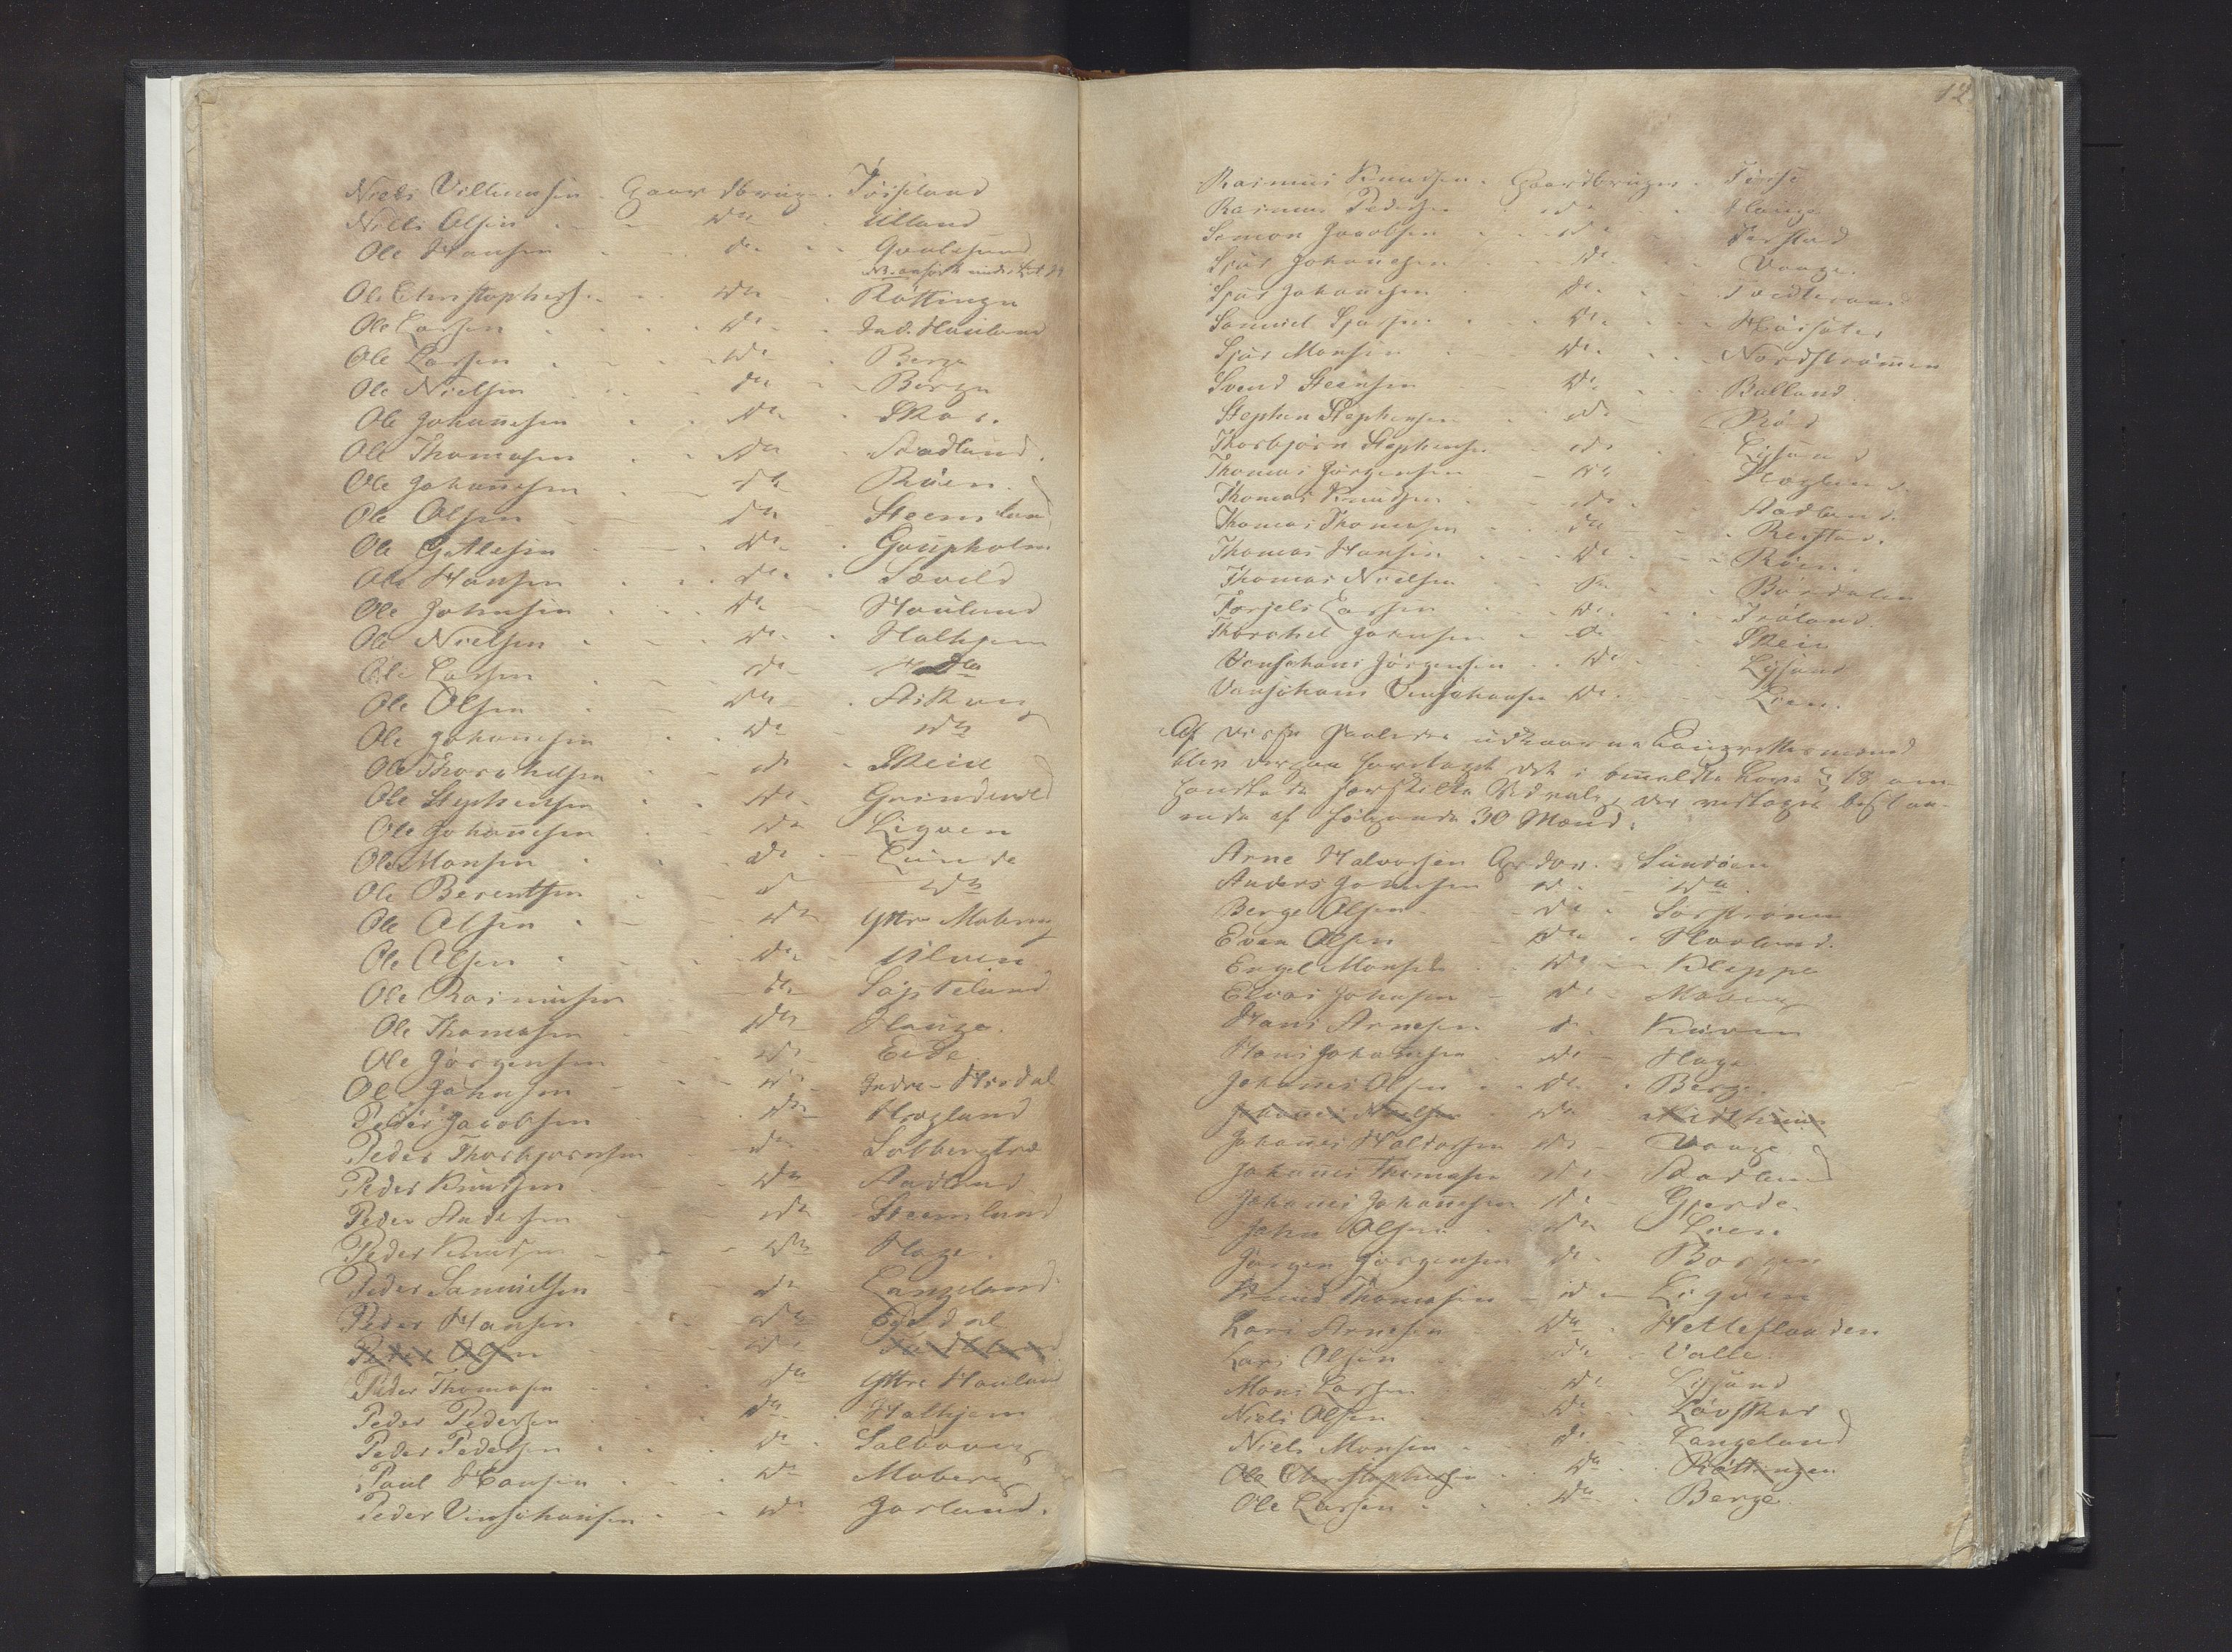 Niels Villumsen . Gaardbruger . Töiseland
Niels Olsen . - - do . Ulland
Ole Hansen . - do - - Godesund
NB. anført under
Ole Christophers. . - do - . Röttingen
Ole Larsen . . . . do . - Ind. Hauland
Ole Larsen . - - do - - Berge
Ole Nielsen . - do - - Berge
Ole Johannesen . - do - . Skar.
Ole Thomasen . . do - Aadland.
Ole Johannesen . - do Röen.
Ole Olsen - do - Steensland
Ole Gitlesen - . do . Gaupholm
Ole Hansen . . . do . . Sævild
Ole Johnsen . . . do - Hauland
Ole Nielsen . - - do . Halhjem
Ole Larsen . - do - do
Ole Olsen . - do - . Askvig
Ole Johannesen . . do - do
Ole Thorchelsen . - do - Skeie
Ole Stephensen . . do . Grindevold
Ole Johannesen . - do Ligven
Ole Monsen . . do - Lunde
Ole Berentsen . - d - do
Ole Olsen . - - do Yttre Moberg
Ole Olsen . . . do Ulven
Ole Rasmusen - do Söfteland
Ole Thomasen . - do Hauge.
Ole Jörgensen - - do Eide.
Ole Johnsen - - - do - Indre-Hisdal
Peder Jacobsen . . do Hægland
Peder Thorbjørnsen - do Solbergtræ
Peder Knudsen . - do Aadland
Peder Andersen - - do Steensland
Peder Knudsen - - - do Hage.
Peder Samuelsen - - do Langeland
Peder Hansen - . - do Eidsdal
Peder Olsen - do
Peder Thomasen . - . do Yttre Hauland
Peder Pedersen . . . do . Halhjem
Peder Pedersen . . . do . Solbavug
Paul Hansen . . . do Moberg
Peder Vinsichansen . - - do Gorland.
12
Rasmus Knudsen . Gaardbruger . Térse
Rasmus Pedersen . do . . Hauge
Semon Jacobsen . - do . Ferstad
Sjur Johannesen . - do . Vaage.
Sjur Johannesen - do . -
Samuel Sjursen . - - do . . - Höisæter
Sjur Monsen . - do . . - Nordstrømen
Svend Steensen - do . . - Balland
Stephen Stephensen . do - Röd
Thorbjörn Stephensen - do - . Lysund
Thomas Jörgensen - do . Hægland.
Thomas Knudsen - - do - . Aadland.
Thomas Thomasen - - do - . Reistad.
Thomas Hansen . - - do . - - Röen.
Thomas Nielsen - - do . . Bördalen
Torjels Larsen - - do . - Tröland.
Thorchel Johnsen - do - Skeie
Vinsichans Jörgensen . . do . - Lysund
Vinsichans Vinsichansen do . - Lien.
Af disse saaledes udkaarne Laugrettesmænd
blev dernæst foretaget det i bemeldte Lovs § 18 om-
handlede særskilte Udvalg, der vedtoges bestaa-
ende af følgende 30 Mænd:
Arne Halvorsen Grdbr. . Sundöen
Anders Johnsen do - do
Berge Olsen . - do . Sörströmen
Even Olsen - do . Hovland.
Engel Monsen . . do - - Kleppe
Elias Johnsen - do - Moberg
Hans Arnesen do . Kuven
Hans Johannesen . do - Hage
Johannes Olsen . . do . Berge.
Johannes Nielsen . do
Johannes Haldorsen do - Vaage
Johannes Thomasen do - Aadland
Johannes Johannesen do - Gjerde
John Olsen . do Lien
Jörgen Jörgensen do . Borgen
Knud Thomasen - do - Ligven
Lars Arnesen - . do - Hetleflaaden
Lars Olsen . do - Valle.
Mons Larsen . do . Lysund
Niels Olsen . - do . Lövskar
Niels Monsen - . do . Langeland
Ole Christophersen . . do . Röttingen
Ole Larsen . . . do . Berge.